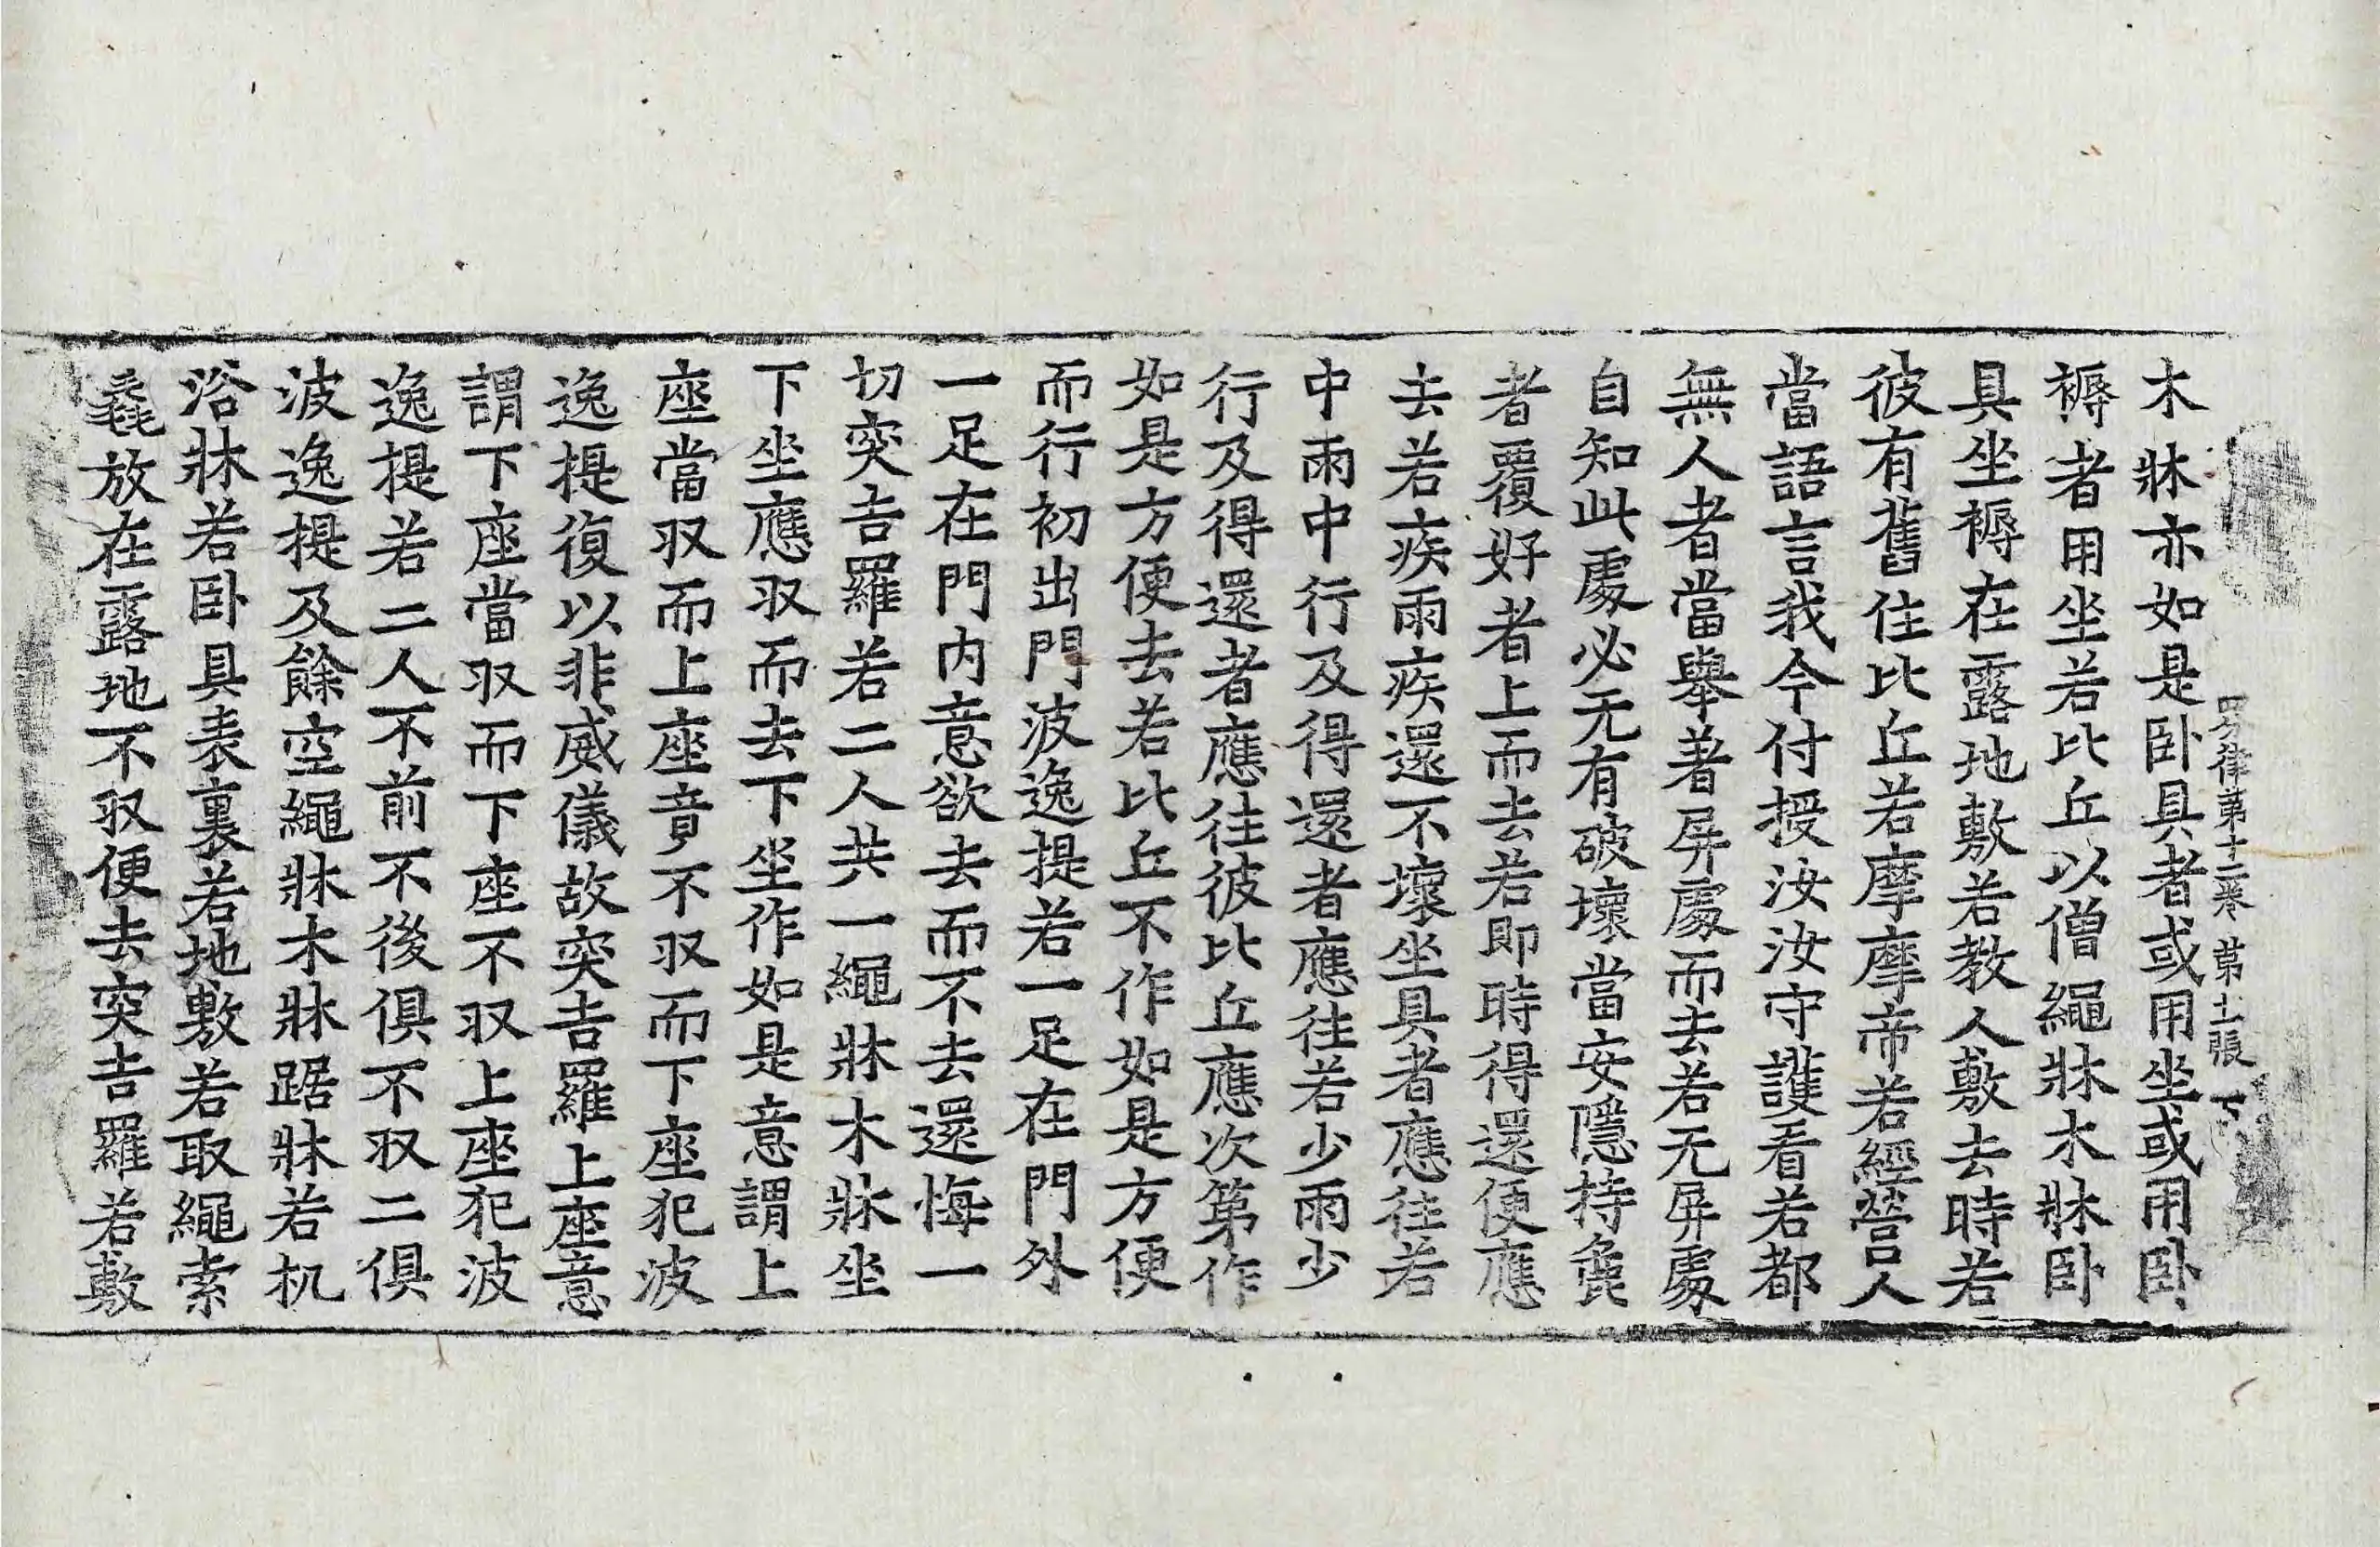 四分律第十二卷 第十二張 下
木牀亦如是卧具者或用坐或用卧
褥者用坐若比丘以僧繩牀木牀卧
具坐褥在露地敷若教人敷去時若
彼有舊住比丘若摩摩帝若經營人
當語言我今付授汝汝守護看若都
無人者當舉著屏處而去若无屏處
自知此處必无有破壞當安隱持麁
者覆好者上而去若即時得還便應
去若疾雨疾還不壞坐具者應往若
中雨中行及得還者應往若少雨少
行及得還者應往彼比丘應次第作
如是方便去若比丘不作如是方便
而行初出門波逸提若一足在門外
一足在門内意欲去而不去還悔一
切突吉羅若二人共一繩牀木牀坐
下坐應𠬧而去下坐作如是意謂上
座當𠬧而上座竟不𠬧而下座犯波
逸提復以非威儀故突吉羅上座意
謂下座當𠬧而下座不𠬧上座犯波
逸提若二人不前不後俱不𠬧二俱
波逸提及餘空繩牀木牀踞牀若机
浴牀若卧具表裏若地敷若取繩索
毳放在露地不𠬧便去突吉羅若敷